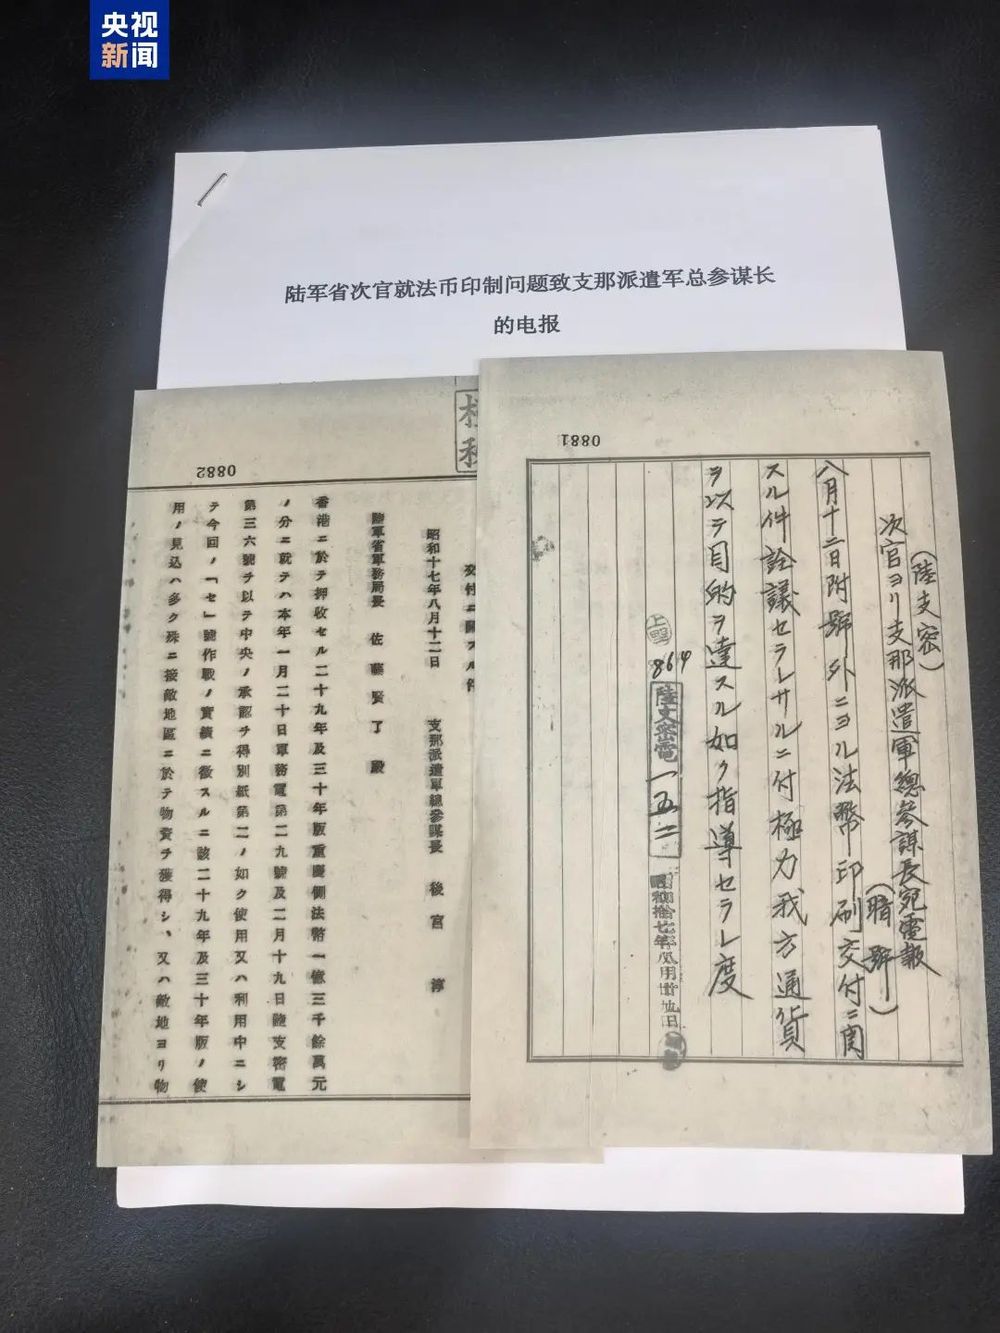 央视
新闻
陆军省次官就法币印制问题致支那派遣军总参谋长
的电报
0881
(陸支密)
次官ヨリ支那派遣軍總参謀長宛電報
(暗號)
八月十二日附號外ニヨル法幣印刷交付ニ関
スル件詮議セラレサルニ付極力我方通貨
ヲ以テ目的ヲ達スル如ク指導セラレ度
864
陸支密電一五二
0882
交付ニ關スル件
昭和十七年八月十二日 支那派遣軍總參謀長 後宮 淳
陸軍省軍務局長 佐藤賢了殿
香港ニ於テ押收セル二十九年及三十年版重慶側法幣一億三千餘萬元
ノ分ニ就テハ本年一月二十日軍務電第二九號及二月十九日陸支密電
第三六號ヲ以テ中央ノ承認ヲ得別紙第二ノ如ク使用又ハ利用中ニシ
テ今回ノ「セ」號作戰ノ實績ニ徴スルニ該二十九年及三十年版ノ使
用ノ見込ハ多ク殊ニ接敵地區ニ於テ物資ヲ獲得シ、又ハ敵地ヨリ物